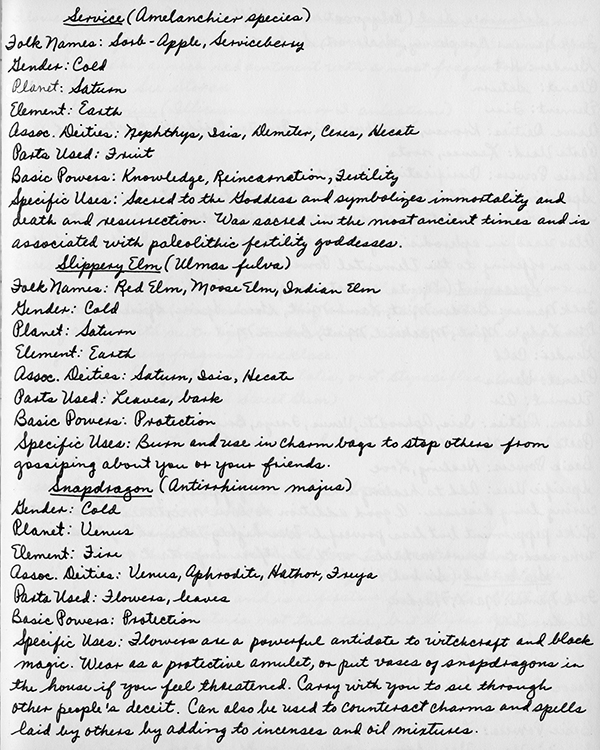 Service (Amelanchier species)
Folk Names: Sorb-Apple, Serviceberry
Gender: Cold
Planet: Saturn
Element: Earth
Assoc. Deities: Nephthys, Isis, Demeter, Ceres, Hecate
Parts Used: Fruit
Basic Powers: Knowledge, Reincarnation, Fertility
Specific Uses: Sacred to the Goddess and symbolizes immortality and
death and resurrection. Was sacred in the most ancient times and is
associated with paleolithic fertility goddesses.
Slippery Elm (Ulmas fulva)
Folk Names: Red Elm, Moose Elm, Indian Elm
Gender: Cold
Planet: Saturn
Element: Earth
Assoc. Deities: Saturn, Isis, Hecate
Parts Used: Leaves, bark
Basic Powers: Protection
Specific Uses: Burn and use in charm bags to stop others from
gossiping about you or your friends.
Snapdragon (Antirrhinum majus)
Gender: Cold
Planet: Venus
Element: Fire
Assoc. Deities: Venus, Aphrodite, Hathor, Freya
Parts Used: Flowers, leaves
Basic Powers: Protection
Specific Uses: Flowers are a powerful antidote to witchcraft and black
magic. Wear as a protective amulet, or put vases of snapdragons in
the house if you feel threatened. Carry with you to see through
other people's deceit. Can also be used to counteract charms and spells
laid by others by adding to incenses and oil mixtures.